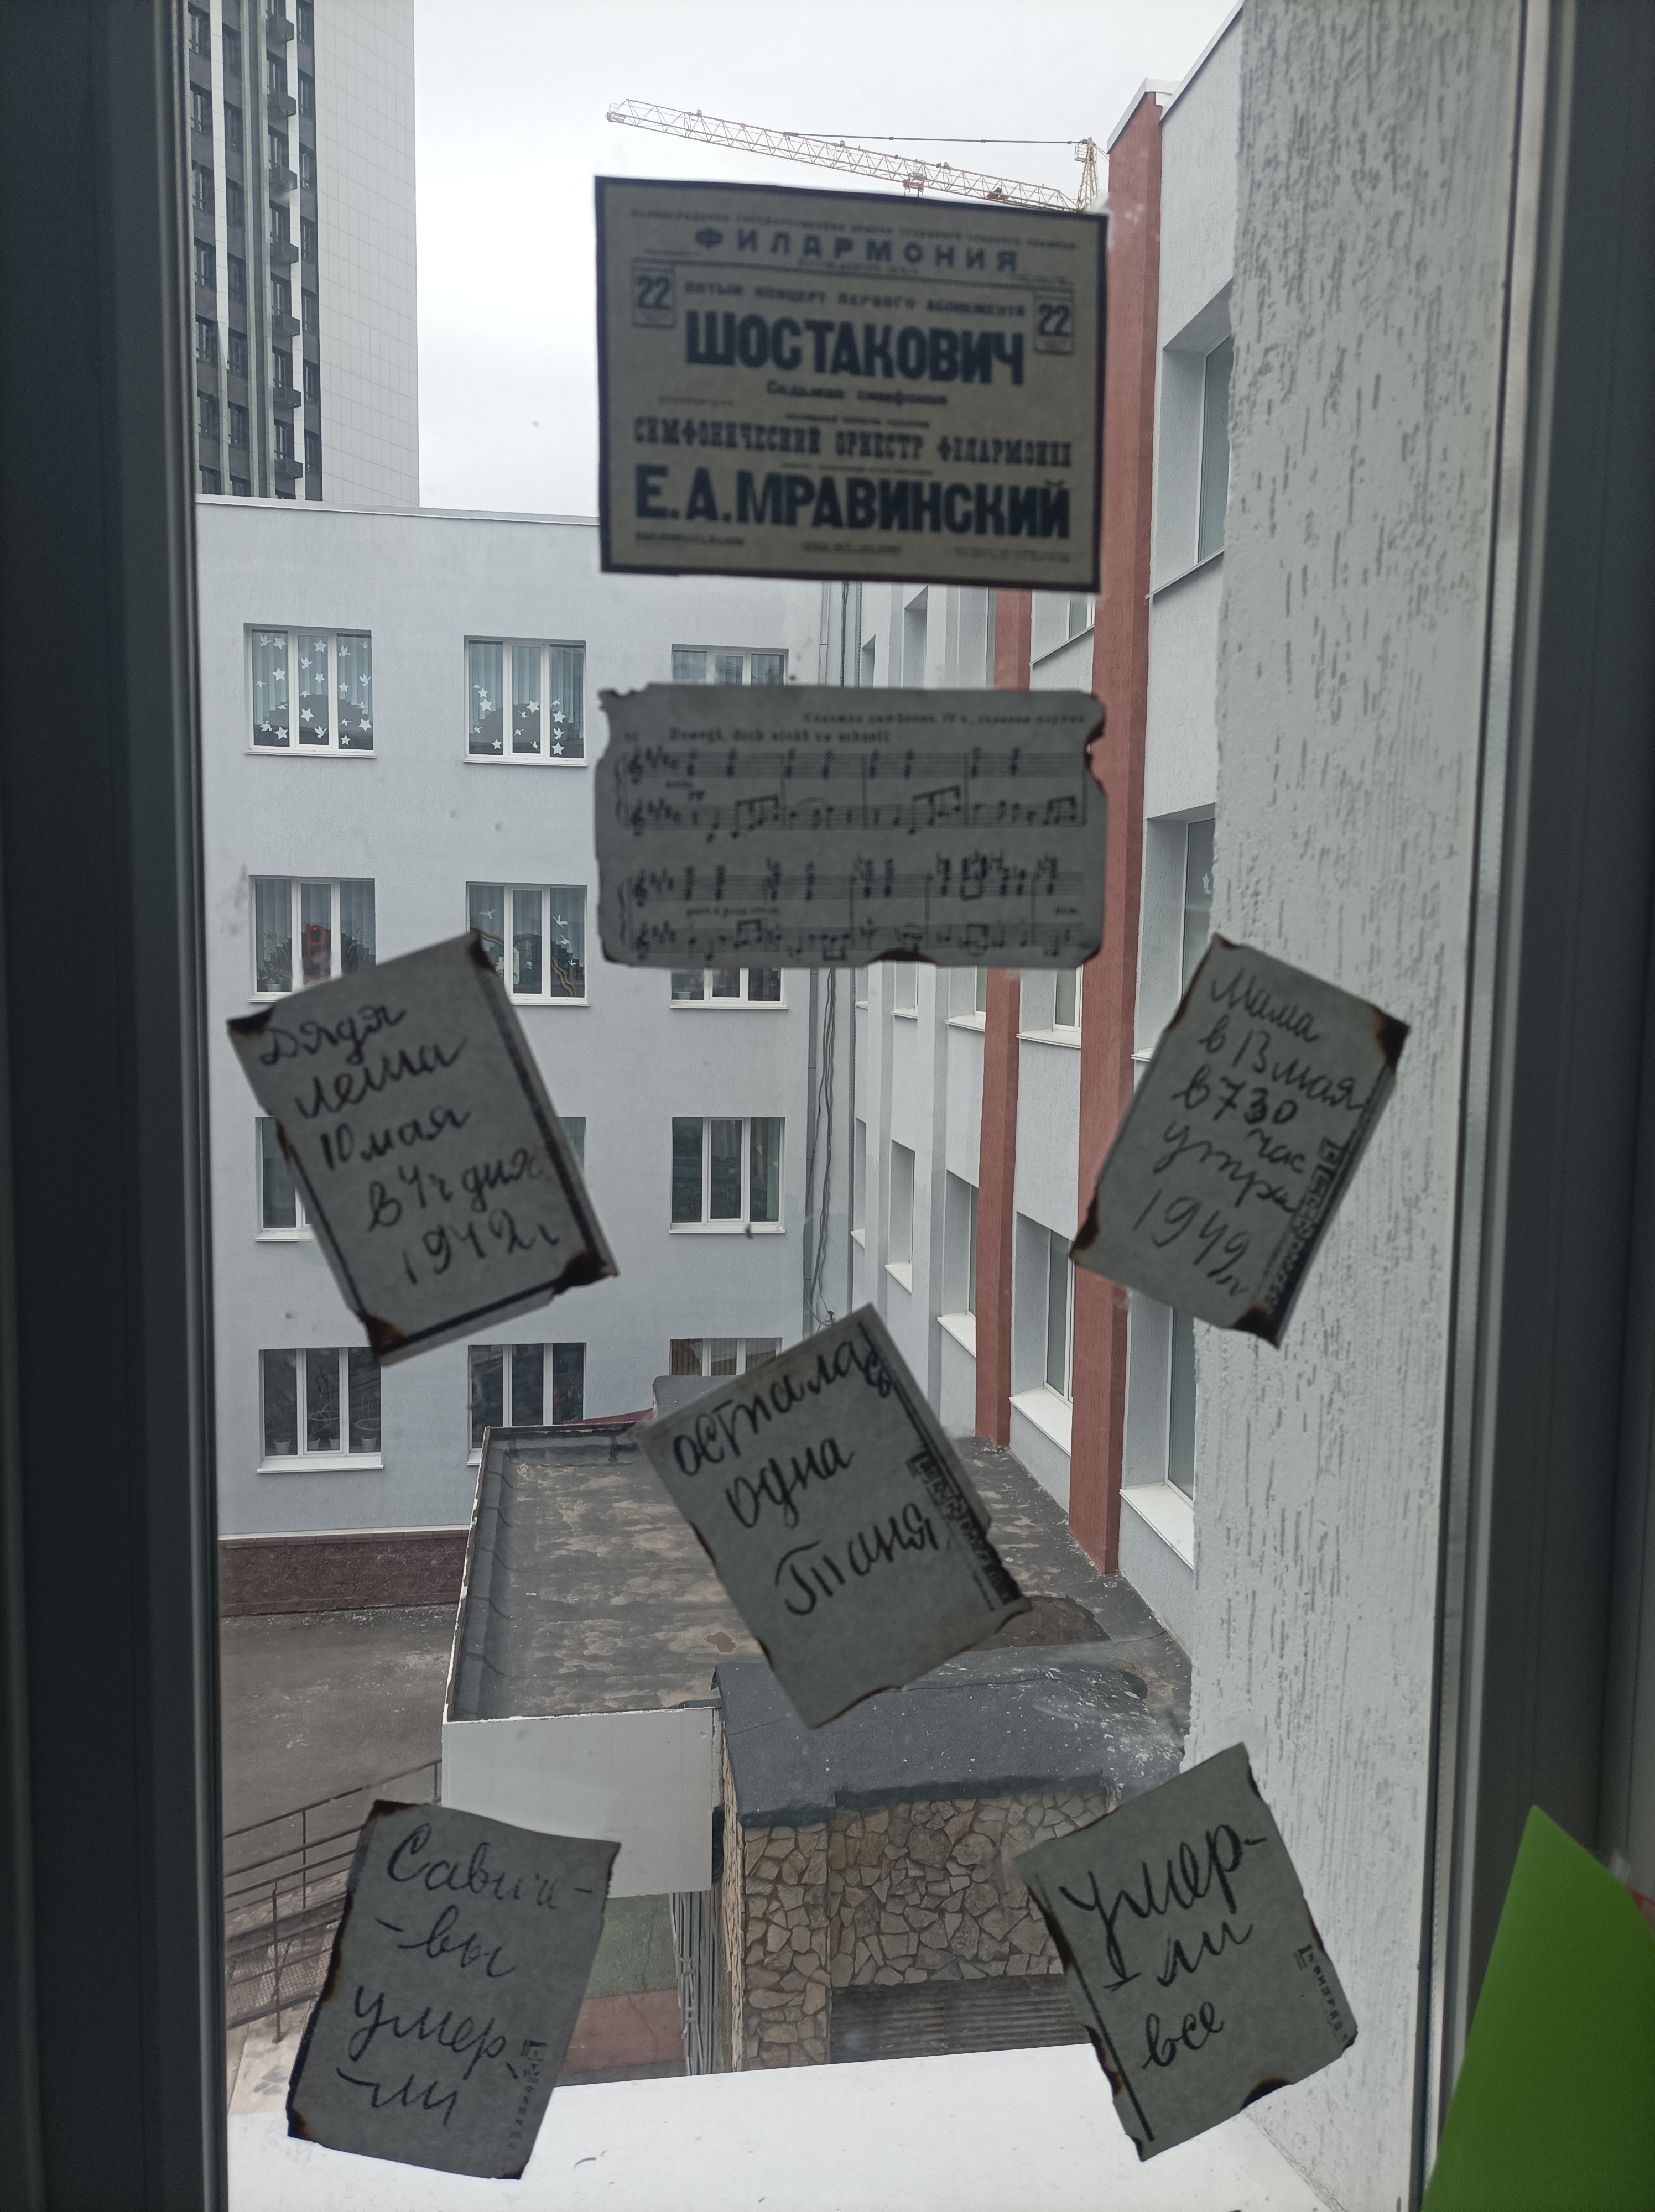 ФИЛАРМОНИЯ
22
ПЯТЫЙ КОНЦЕРТ ПЕРВОГО АБОНЕМЕНТА
22
ШОСТАКОВИЧ
Седьмая симфония
СИМФОНИЧЕСКИЙ ОРКЕСТР ФИЛАРМОНИИ
Е.А.МРАВИНСКИЙ
Седьмая симфония, IV ч.,
Bewegt, doch nicht zu schnell
pp
Дядя
Леша
10 мая
в 4ч дня
1942г
Мама
в 13 мая
в 730
час
утра
1942г
осталась
одна
Таня
Савиче-
-вы
умер
-ли
Умер-
ли
все